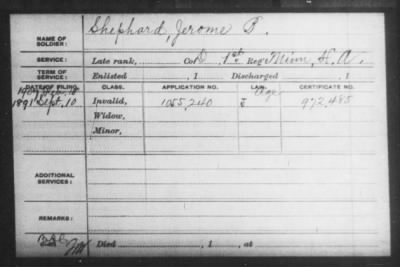 NAME OF SOLDIER: Shephard, Jerome B.
SERVICE: Late rank, Co. D, 1st Reg't Minn. H. A.
TERM OF SERVICE: Enlisted , 1 Discharged , 1
DATE OF FILING. CLASS. APPLICATION NO. LAW. CERTIFICATE NO.
Age
1891 Sept. 10 Invalid, 1055,240 972,485
Widow,
Minor,
ADDITIONAL SERVICES:
REMARKS:
Died , 1 , at